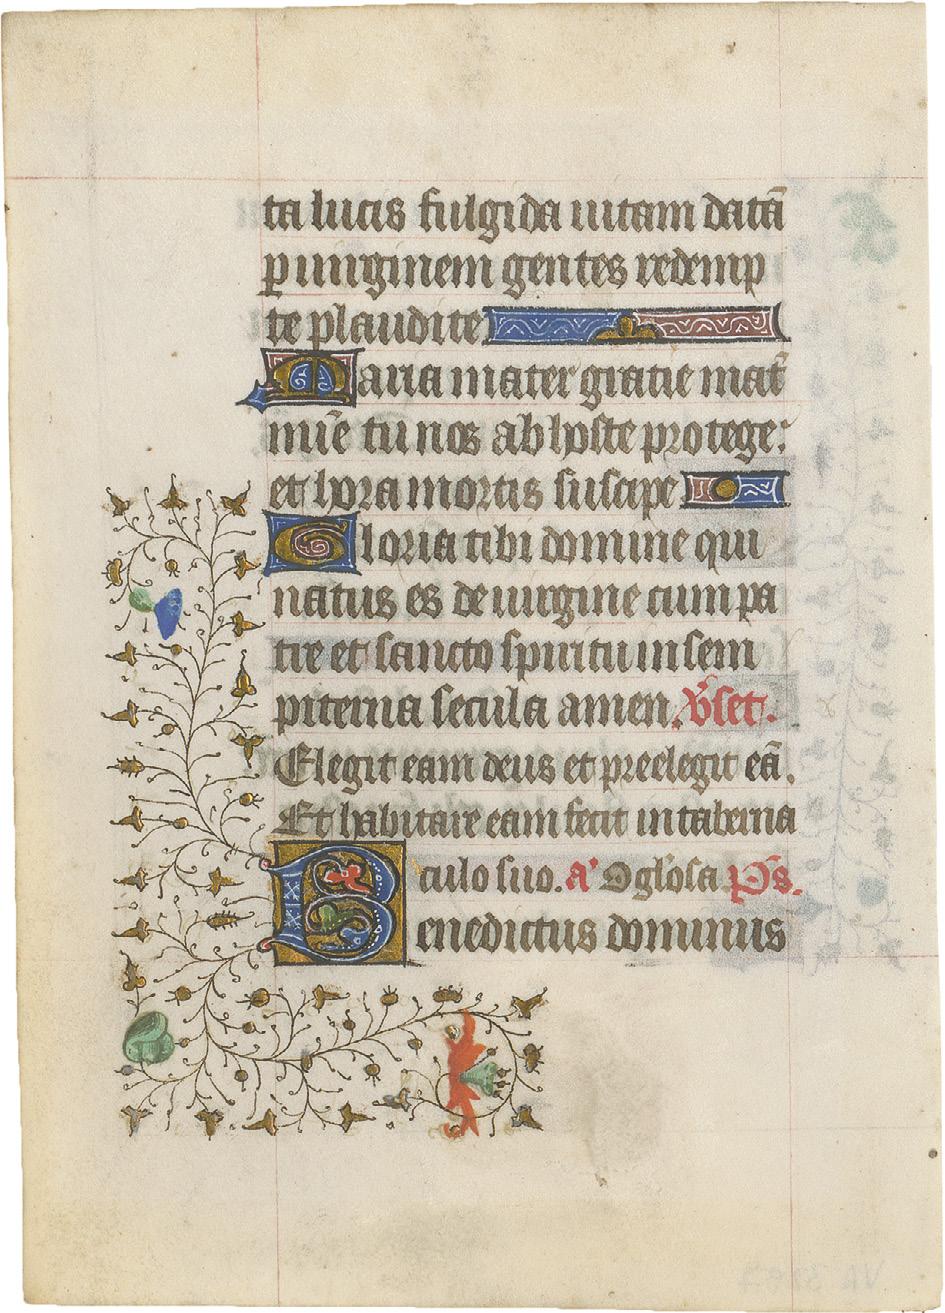 ta lucis fulgida uitam datā
ꝑ uirginem gentes redemp
te plaudite
Maria mater gratie mat᷑
mīe tu nos ab hoste protege:
et hora mortis suscipe
Gloria tibi domine qui
natus es de uirgine cum pa
tre et sancto spiritu in sem
piterna secula amen. v̄set.
Elegit eam deus et preelegit eā.
Et habitare eam fecit in taberna
culo suo. a' O glosa Ps̄.
Benedictus dominus